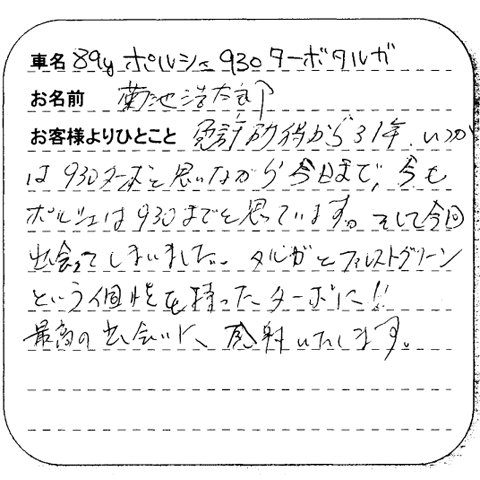 車名 89y ポルシェ930ターボタルガ
お名前 菊池浩太郎
お客様よりひとこと 免許取得から31年、いつか
は930ターボと思いながら今日まで、今も
ポルシェは930までと思っています。そして今回
出会ってしまいました。タルガとフォレストグリーン
という個性を持ったターボに!!
最高の出会いに、感謝いたします。